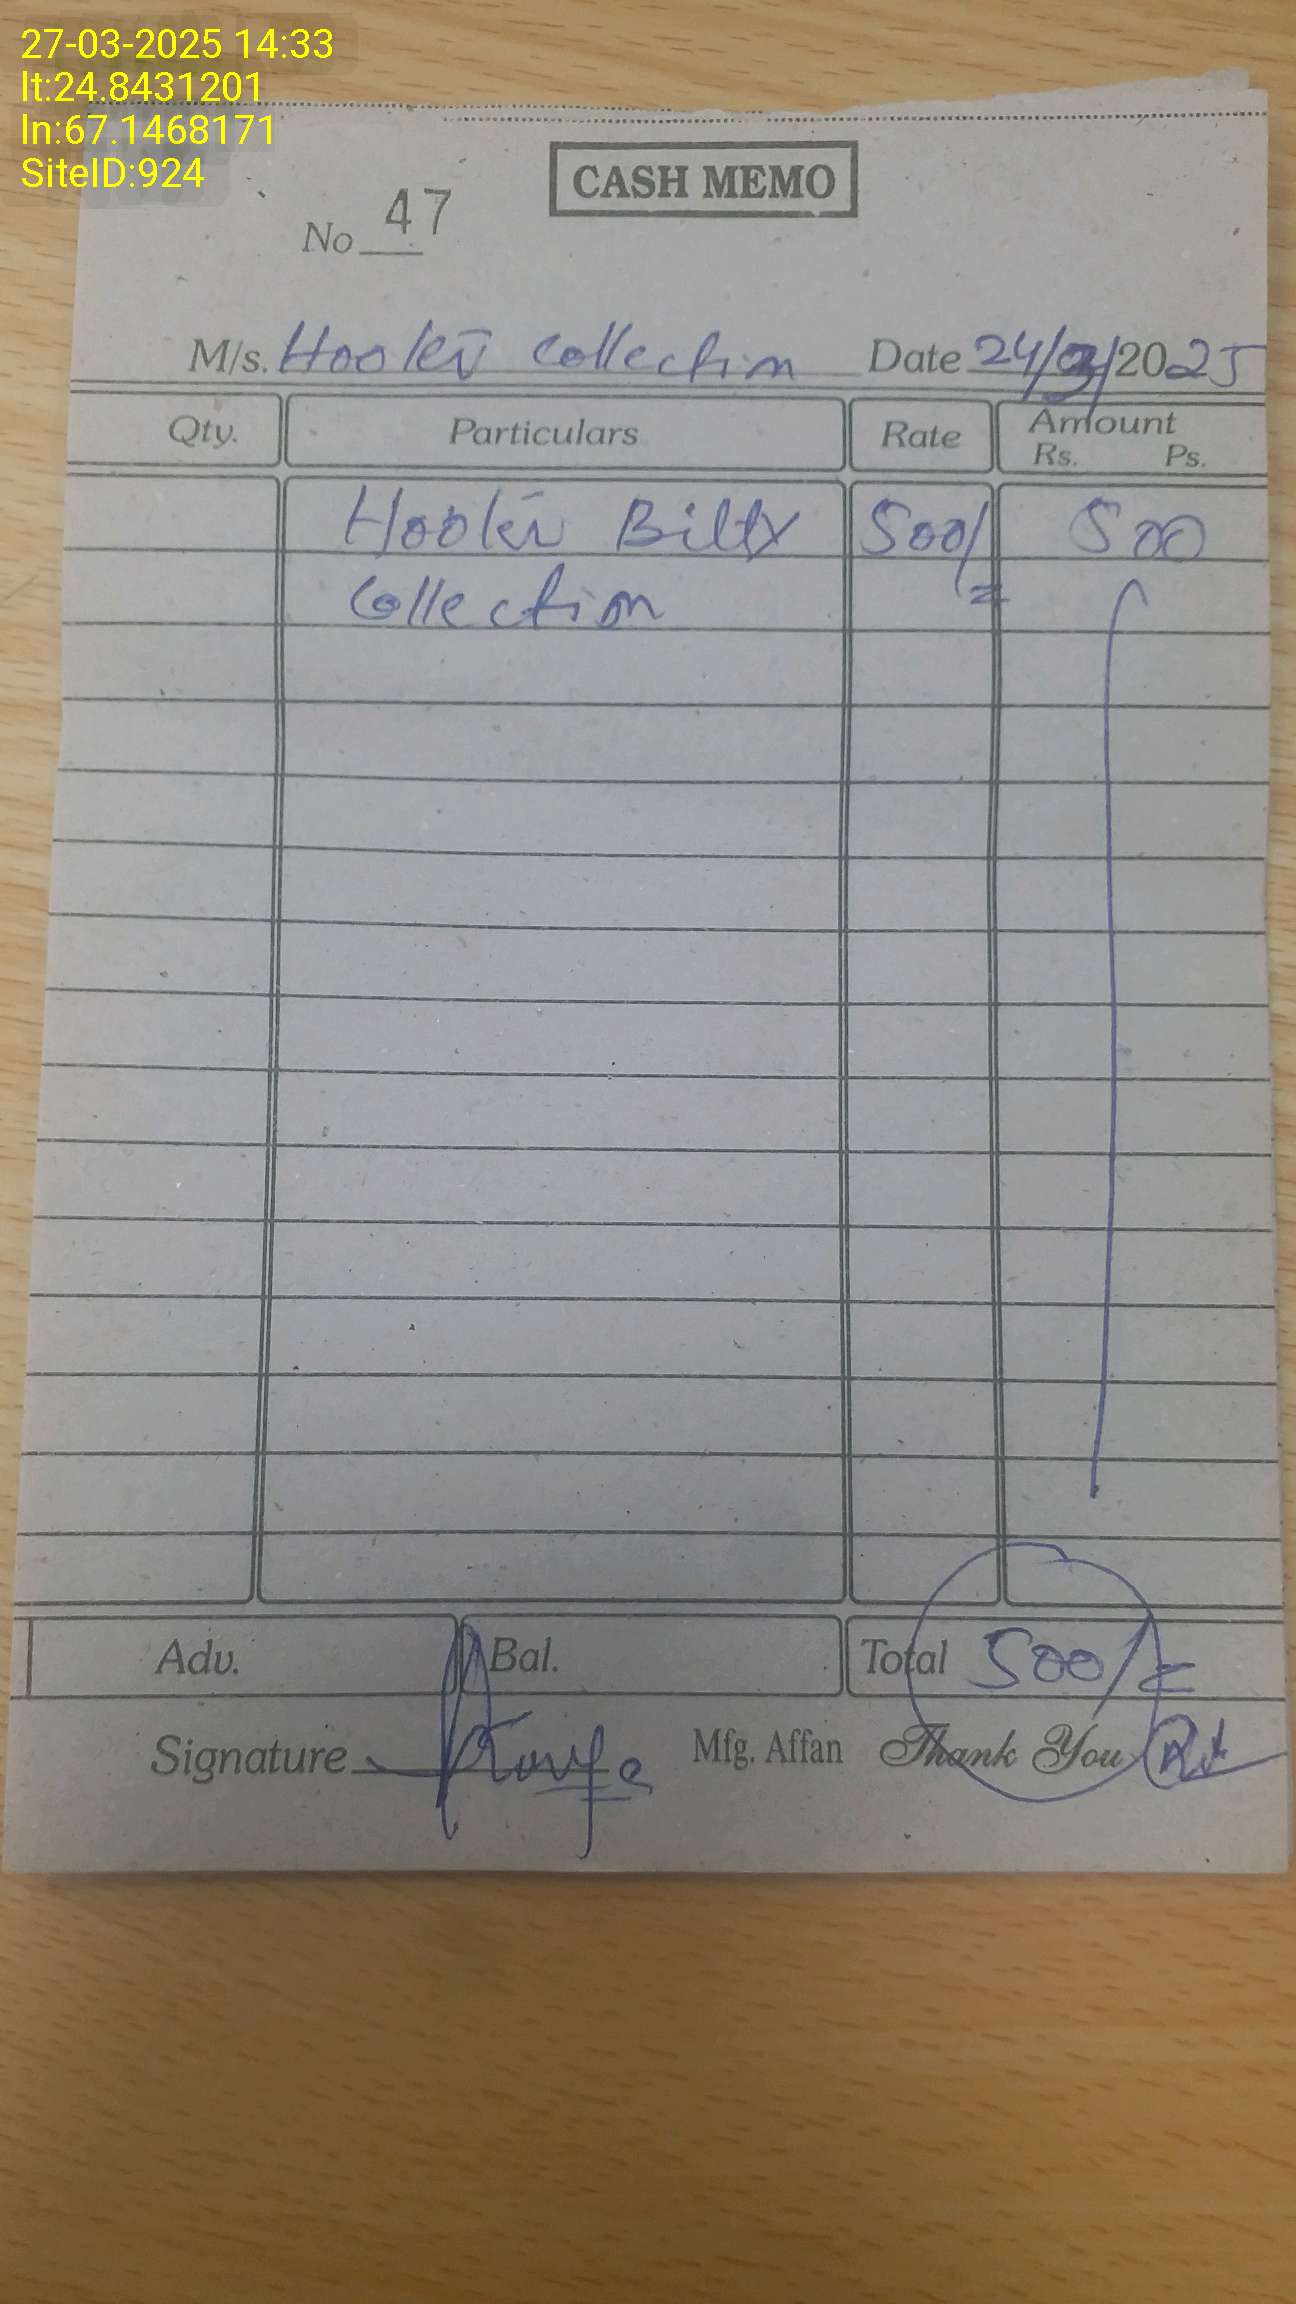 27-03-2025 14:33
lt:24.8431201
ln:67.1468171
SiteID:924
CASH MEMO
No 47
M/s. Hooker Collection Date 24/03/2025
Qty. Particulars Rate Amount
Rs. Ps.
Hooker Bilty 500/= 500
Collection
Adv. Bal. Total 500/=
Signature Mfg. Affan Thank You